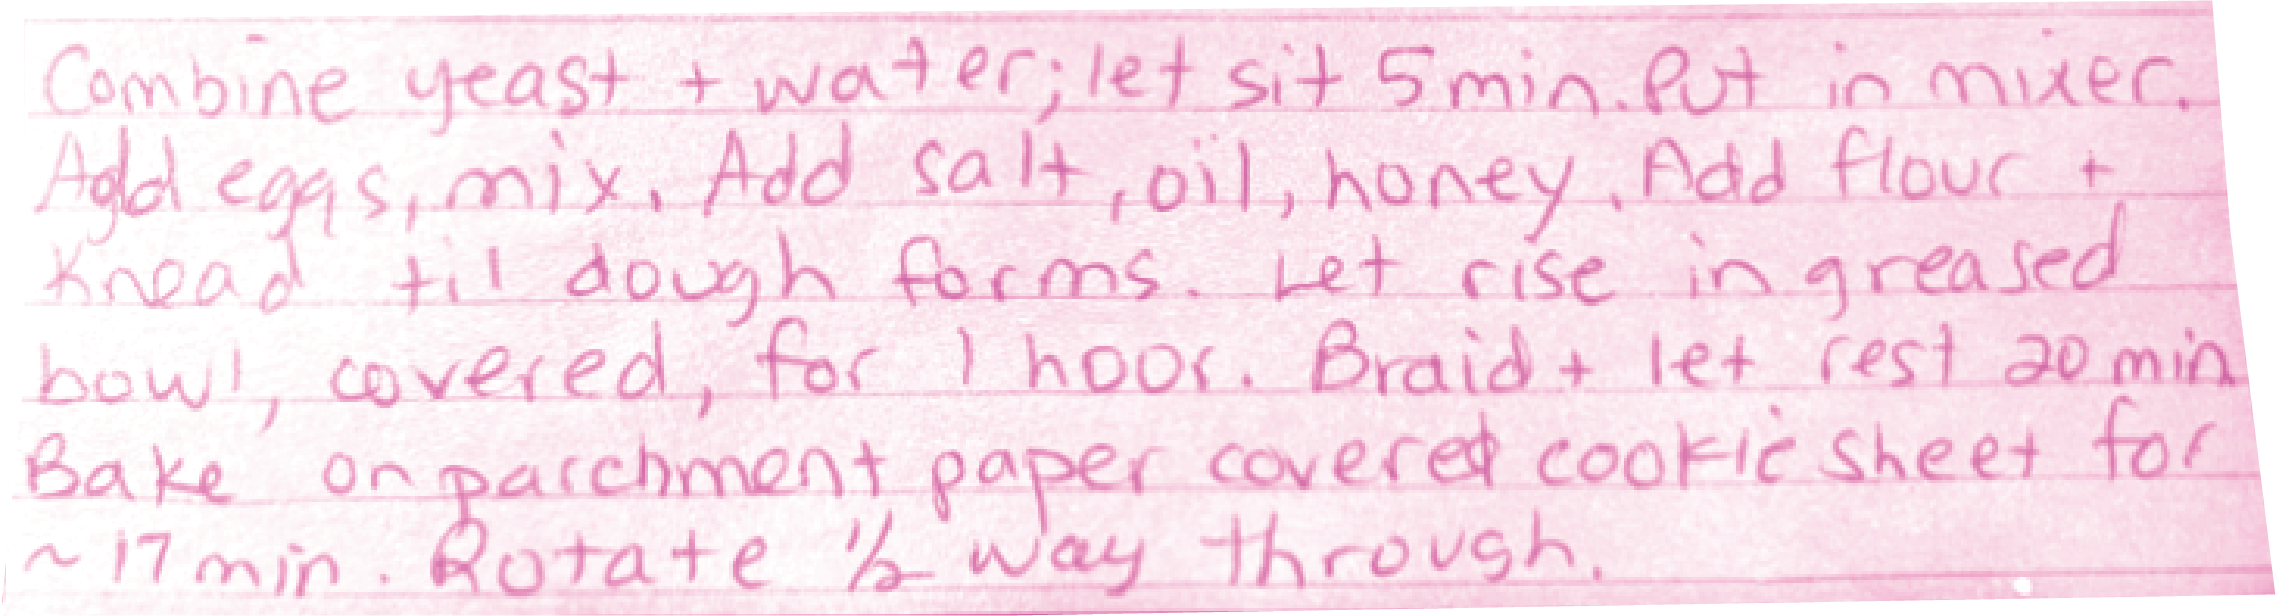 Combine yeast + water; let sit 5 min. Put in mixer.
Add eggs, mix. Add salt, oil, honey. Add flour +
Knead til dough forms. Let rise in greased
bowl, covered, for 1 hour. Braid + let rest 20 min
Bake on parchment paper covered cookie sheet for
~ 17 min. Rotate 1/2 way through.